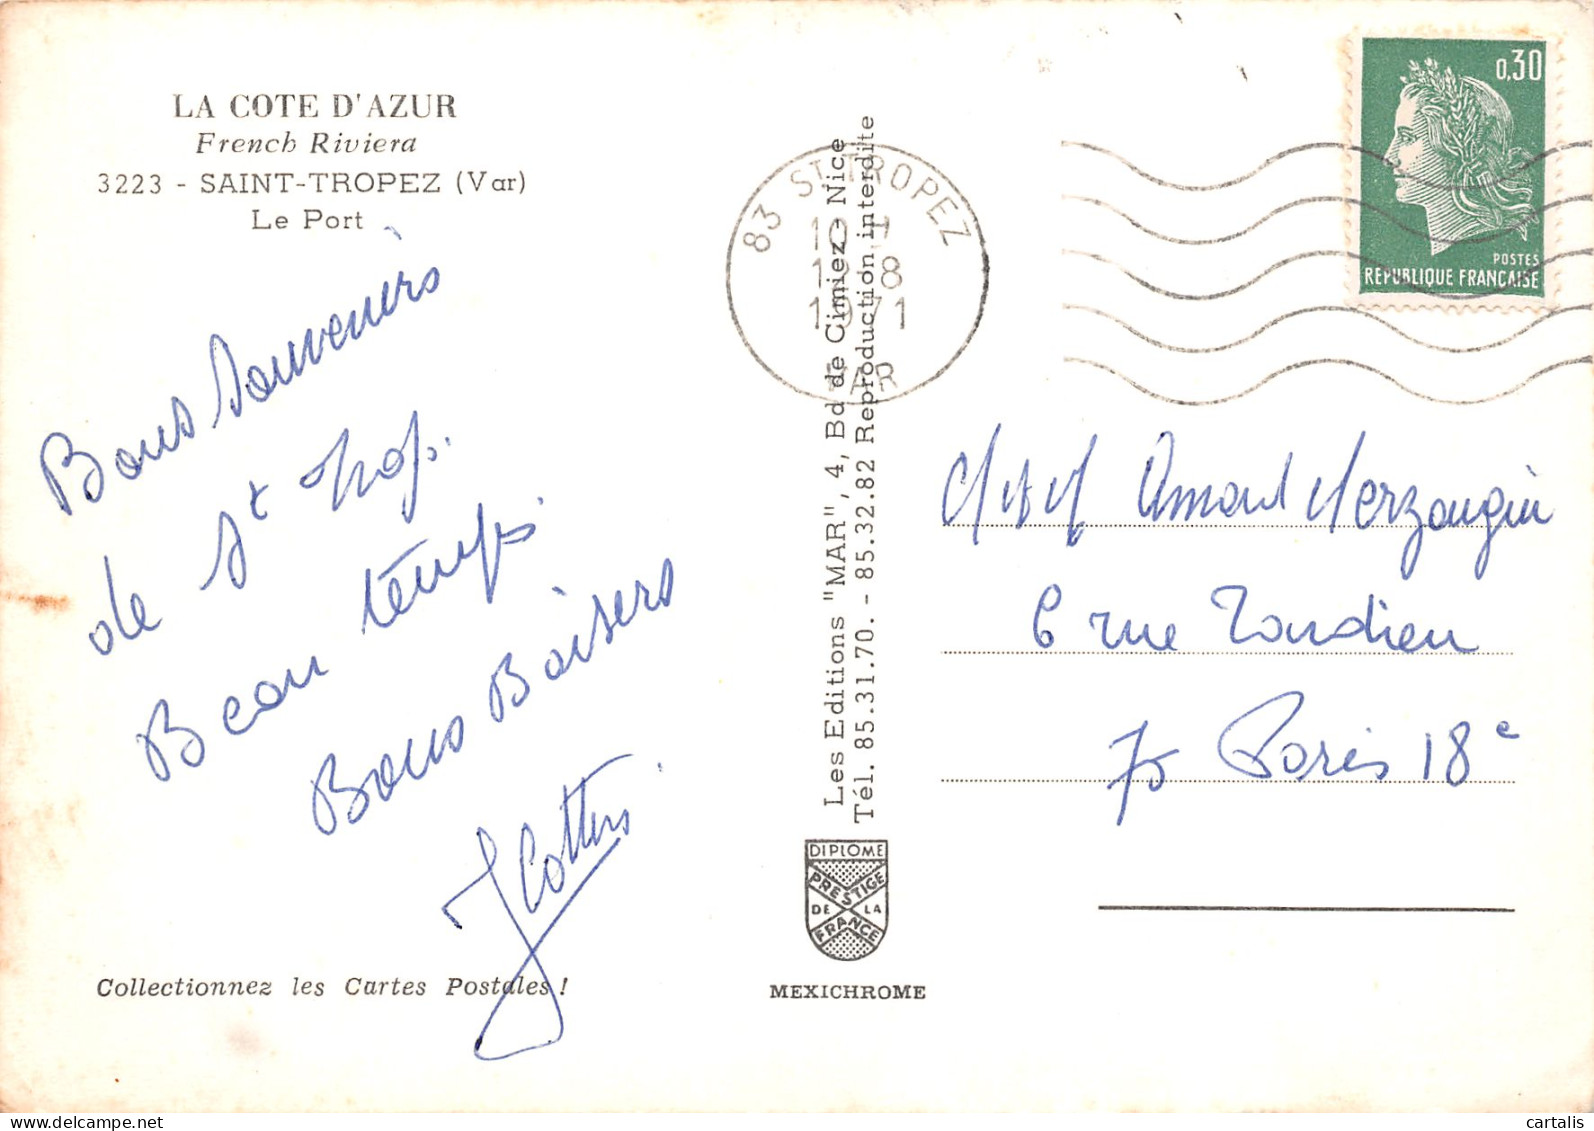 LA COTE D'AZUR
French Riviera
3223 - SAINT-TROPEZ (Var)
Le Port
Bons Souvenirs
de St Trop.
Beau temps.
Bons Baisers
Collectionnez les Cartes Postales !
Les Editions "MAR", 4, Bd de Cimiez - Nice
Tél. 85.31.70. - 85.32.82 Reproduction interdite
DIPLOME
PRESTIGE
DE LA
FRANCE
MEXICHROME
83 ST TROPEZ
1971
VAR
0,30
POSTES
REPUBLIQUE FRANÇAISE
6 rue
75 Paris 18e
cartalis